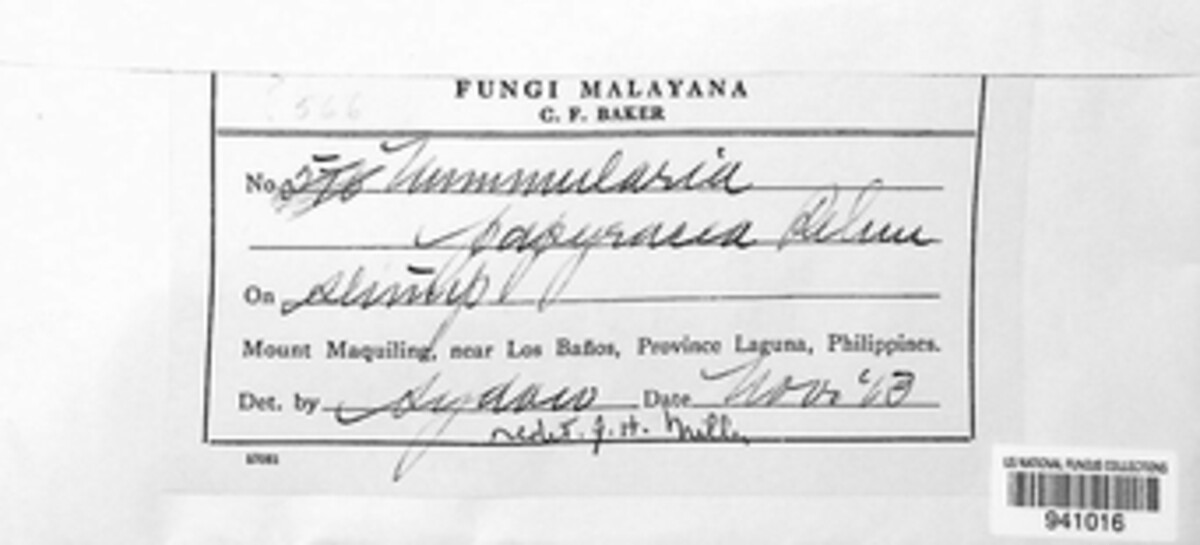 FUNGI MALAYANA
C. F. BAKER
566
No. 576 Nummularia
papyracea Rehm
On Stump
Mount Maquiling, near Los Baños, Province Laguna, Philippines.
Det. by Sydow Date Nov. '13
redet. J. H. Miller
US NATIONAL FUNGUS COLLECTIONS
941016